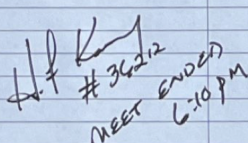 # 36212
MEET ENDED
6:10 PM